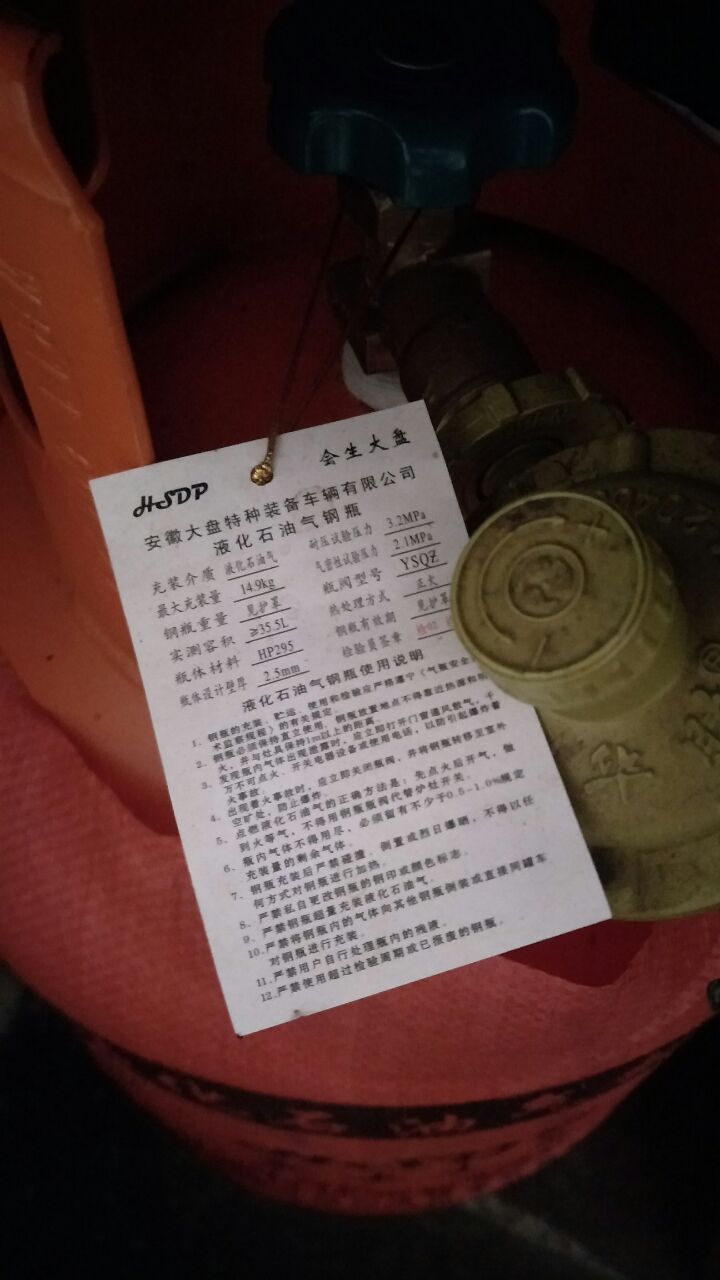 HSDP
会生大盘
安徽大盘特种装备车辆有限公司
液化石油气钢瓶
充装介质 液化石油气 耐压试验压力 3.2MPa
最大充装量 14.9kg 气密性试验压力 2.1MPa
钢瓶重量 见护罩 瓶阀型号 YSQZ
实测容积 ≥35.5L 热处理方式 正火
瓶体材料 HP295 钢瓶有效期 见护罩
瓶体设计壁厚 2.5mm 检验员签章
液化石油气钢瓶使用说明
1. 钢瓶的充装、贮运、使用和检验应严格遵守《气瓶安全
术监察规程》的有关规定。
2. 钢瓶必须保持直立使用，钢瓶放置地点不得靠近热源和明
火，并与灶具保持1m以上的距离。
3. 发现瓶内气体出现泄漏时，应立即打开门窗通风散气，千
万不可点火、开关电器设备或使用电话，以防引起爆炸着
火事故。
4. 出现着火事故时，应立即关闭瓶阀，并将钢瓶转移至室外
空旷处，防止爆炸。
5. 点燃液化石油气的正确方法是：先点火后开气，做
到火等气，不得用钢瓶瓶阀代替炉灶开关。
6. 瓶内气体不得用尽，必须留有不少于0.5-1.0%规定
充装量的剩余气体。
7. 钢瓶充装后严禁碰撞、倒置或烈日爆晒，不得以任
何方式对钢瓶进行加热。
8. 严禁私自更改钢瓶的钢印或颜色标志。
9. 严禁钢瓶超量充装液化石油气。
10. 严禁将钢瓶内的气体向其他钢瓶倒装或直接同罐车
对钢瓶进行充装。
11. 严禁用户自行处理瓶内的残液。
12. 严禁使用超过检验周期或已报废的钢瓶。
华